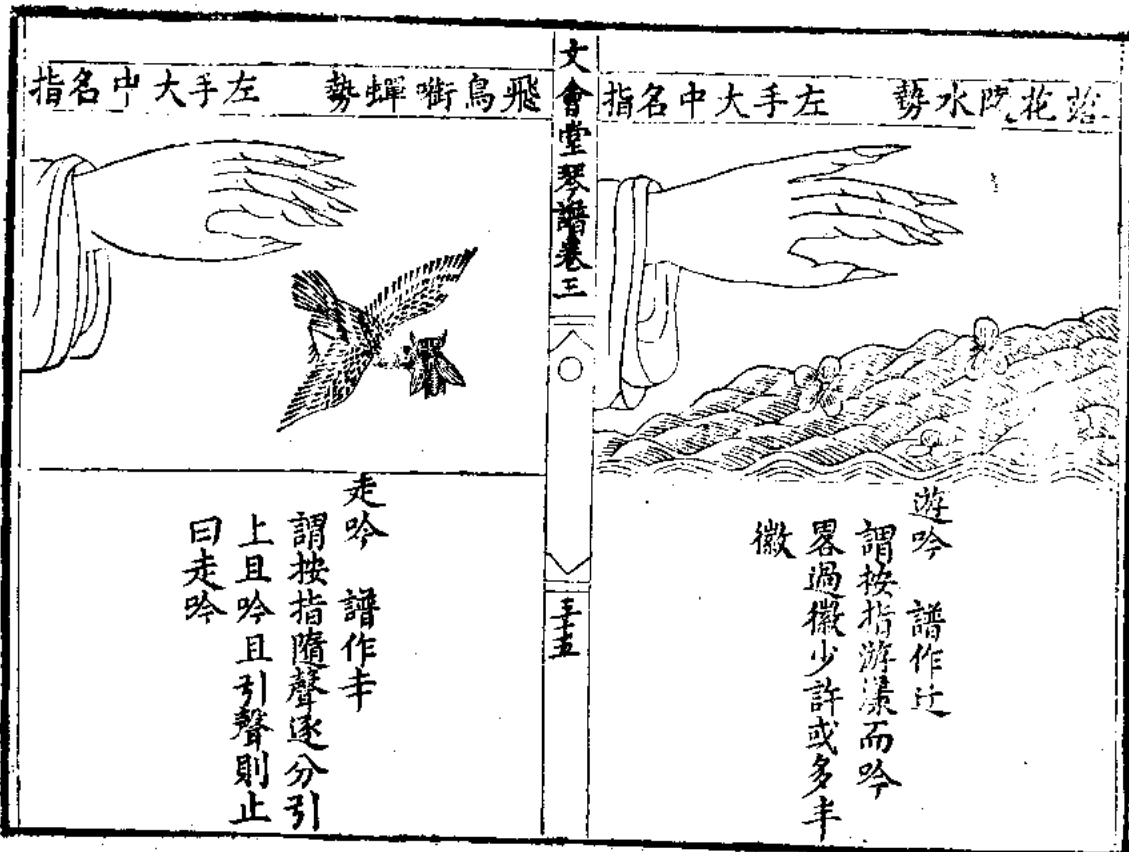 落花随水勢 左手大中名指
遊吟 譜作
謂按指游漾而吟
畧過徽少許或多半
徽
文會堂琴譜卷三
三十五
飛鳥銜蟬勢 左手大中名指
走吟 譜作
謂按指隨聲逐分引
上且吟且引聲則止
曰走吟